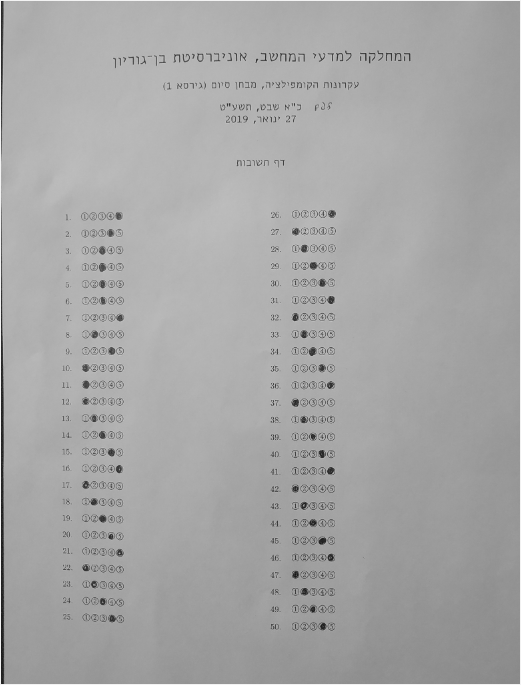 המחלקה למדעי המחשב, אוניברסיטת בן־גוריון
עקרונות הקומפילציה, מבחן סיום (גירסא 1)
כ"א שבט, תשע"ט
27 ינואר, 2019
דף תשובות
1. ①②③④
2. ①②③⑤
3. ①②④⑤
4. ①②④⑤
5. ①②④⑤
6. ①②④⑤
7. ①②③④
8. ①③④⑤
9. ①②③⑤
10. ②③④⑤
11. ②③④⑤
12. ②③④⑤
13. ①③④⑤
14. ①②④⑤
15. ①②③⑤
16. ①②③④
17. ②③④⑤
18. ①③④⑤
19. ①②④⑤
20. ①②③⑤
21. ①②③④
22. ②③④⑤
23. ①③④⑤
24. ①②④⑤
25. ①②③⑤
26. ①②③④
27. ②③④⑤
28. ①③④⑤
29. ①②④⑤
30. ①②③⑤
31. ①②③④
32. ②③④⑤
33. ①③④⑤
34. ①②④⑤
35. ①②③⑤
36. ①②③④
37. ②③④⑤
38. ①③④⑤
39. ①②④⑤
40. ①②③⑤
41. ①②③④
42. ②③④⑤
43. ①③④⑤
44. ①②④⑤
45. ①②③⑤
46. ①②③④
47. ②③④⑤
48. ①③④⑤
49. ①②④⑤
50. ①②③⑤